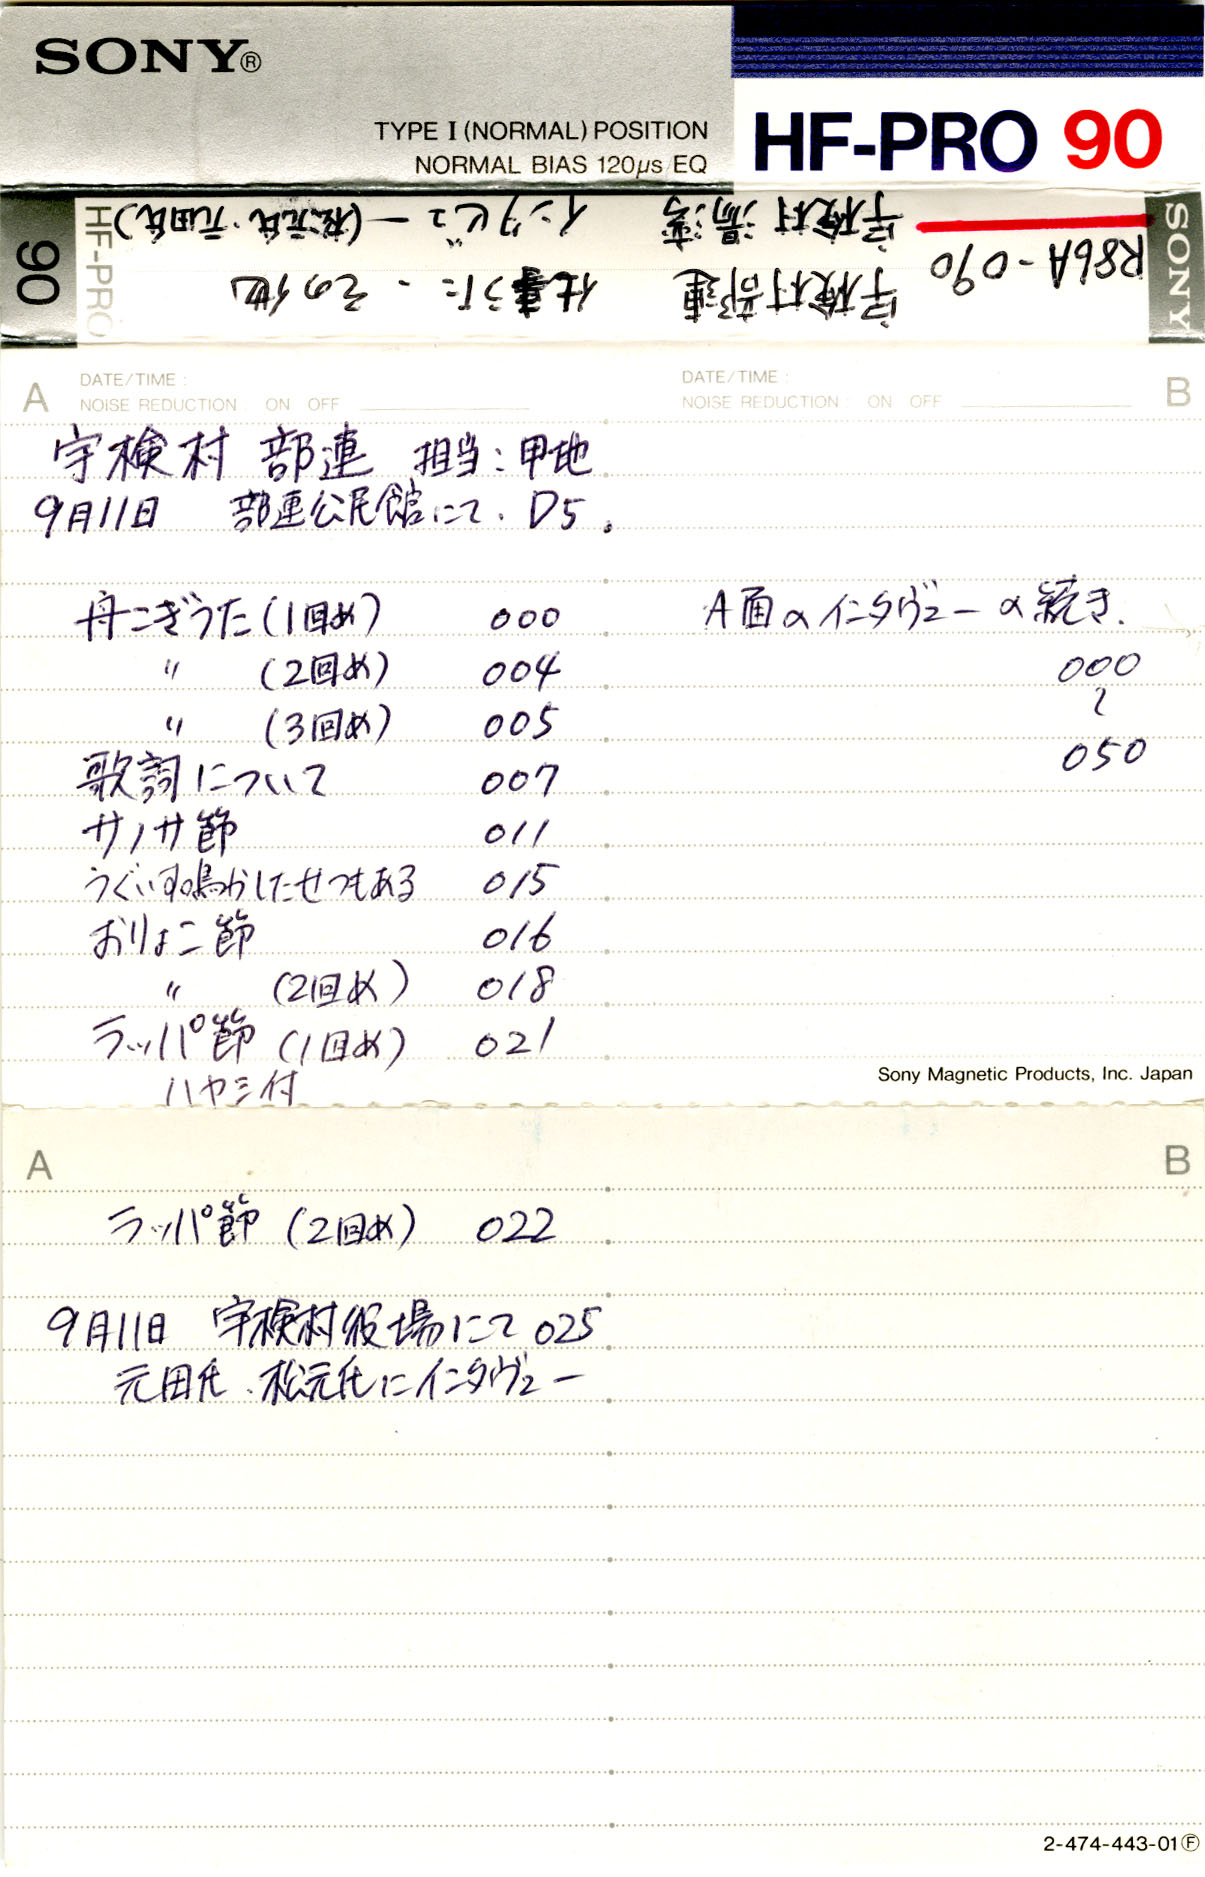 SONY®
TYPE I (NORMAL) POSITION
NORMAL BIAS 120μs EQ
HF-PRO 90
SONY
R86A-090
宇検村部連 仕事うた・その他
宇検村湯湾 インタビュー(松元氏・元田氏)
HF-PRO
90
A DATE/TIME :
NOISE REDUCTION : ON OFF
DATE/TIME : B
NOISE REDUCTION : ON OFF
宇検村 部連 担当:甲地
9月11日 部連公民館にて. D5.
舟こぎうた(1回め) 000
〃 (2回め) 004
〃 (3回め) 005
歌詞について 007
サノサ節 011
うぐいす鳴かしたせつもある 015
おりょこ節 016
〃 (2回め) 018
ラッパ節 (1回め) 021
ハヤシ付
A面のインタヴュー の続き.
000
〜
050
Sony Magnetic Products, Inc. Japan
A
B
ラッパ節 (2回め) 022
9月11日 宇検村役場にて 025
元田氏、松元氏にインタヴュー
2-474-443-01Ⓕ